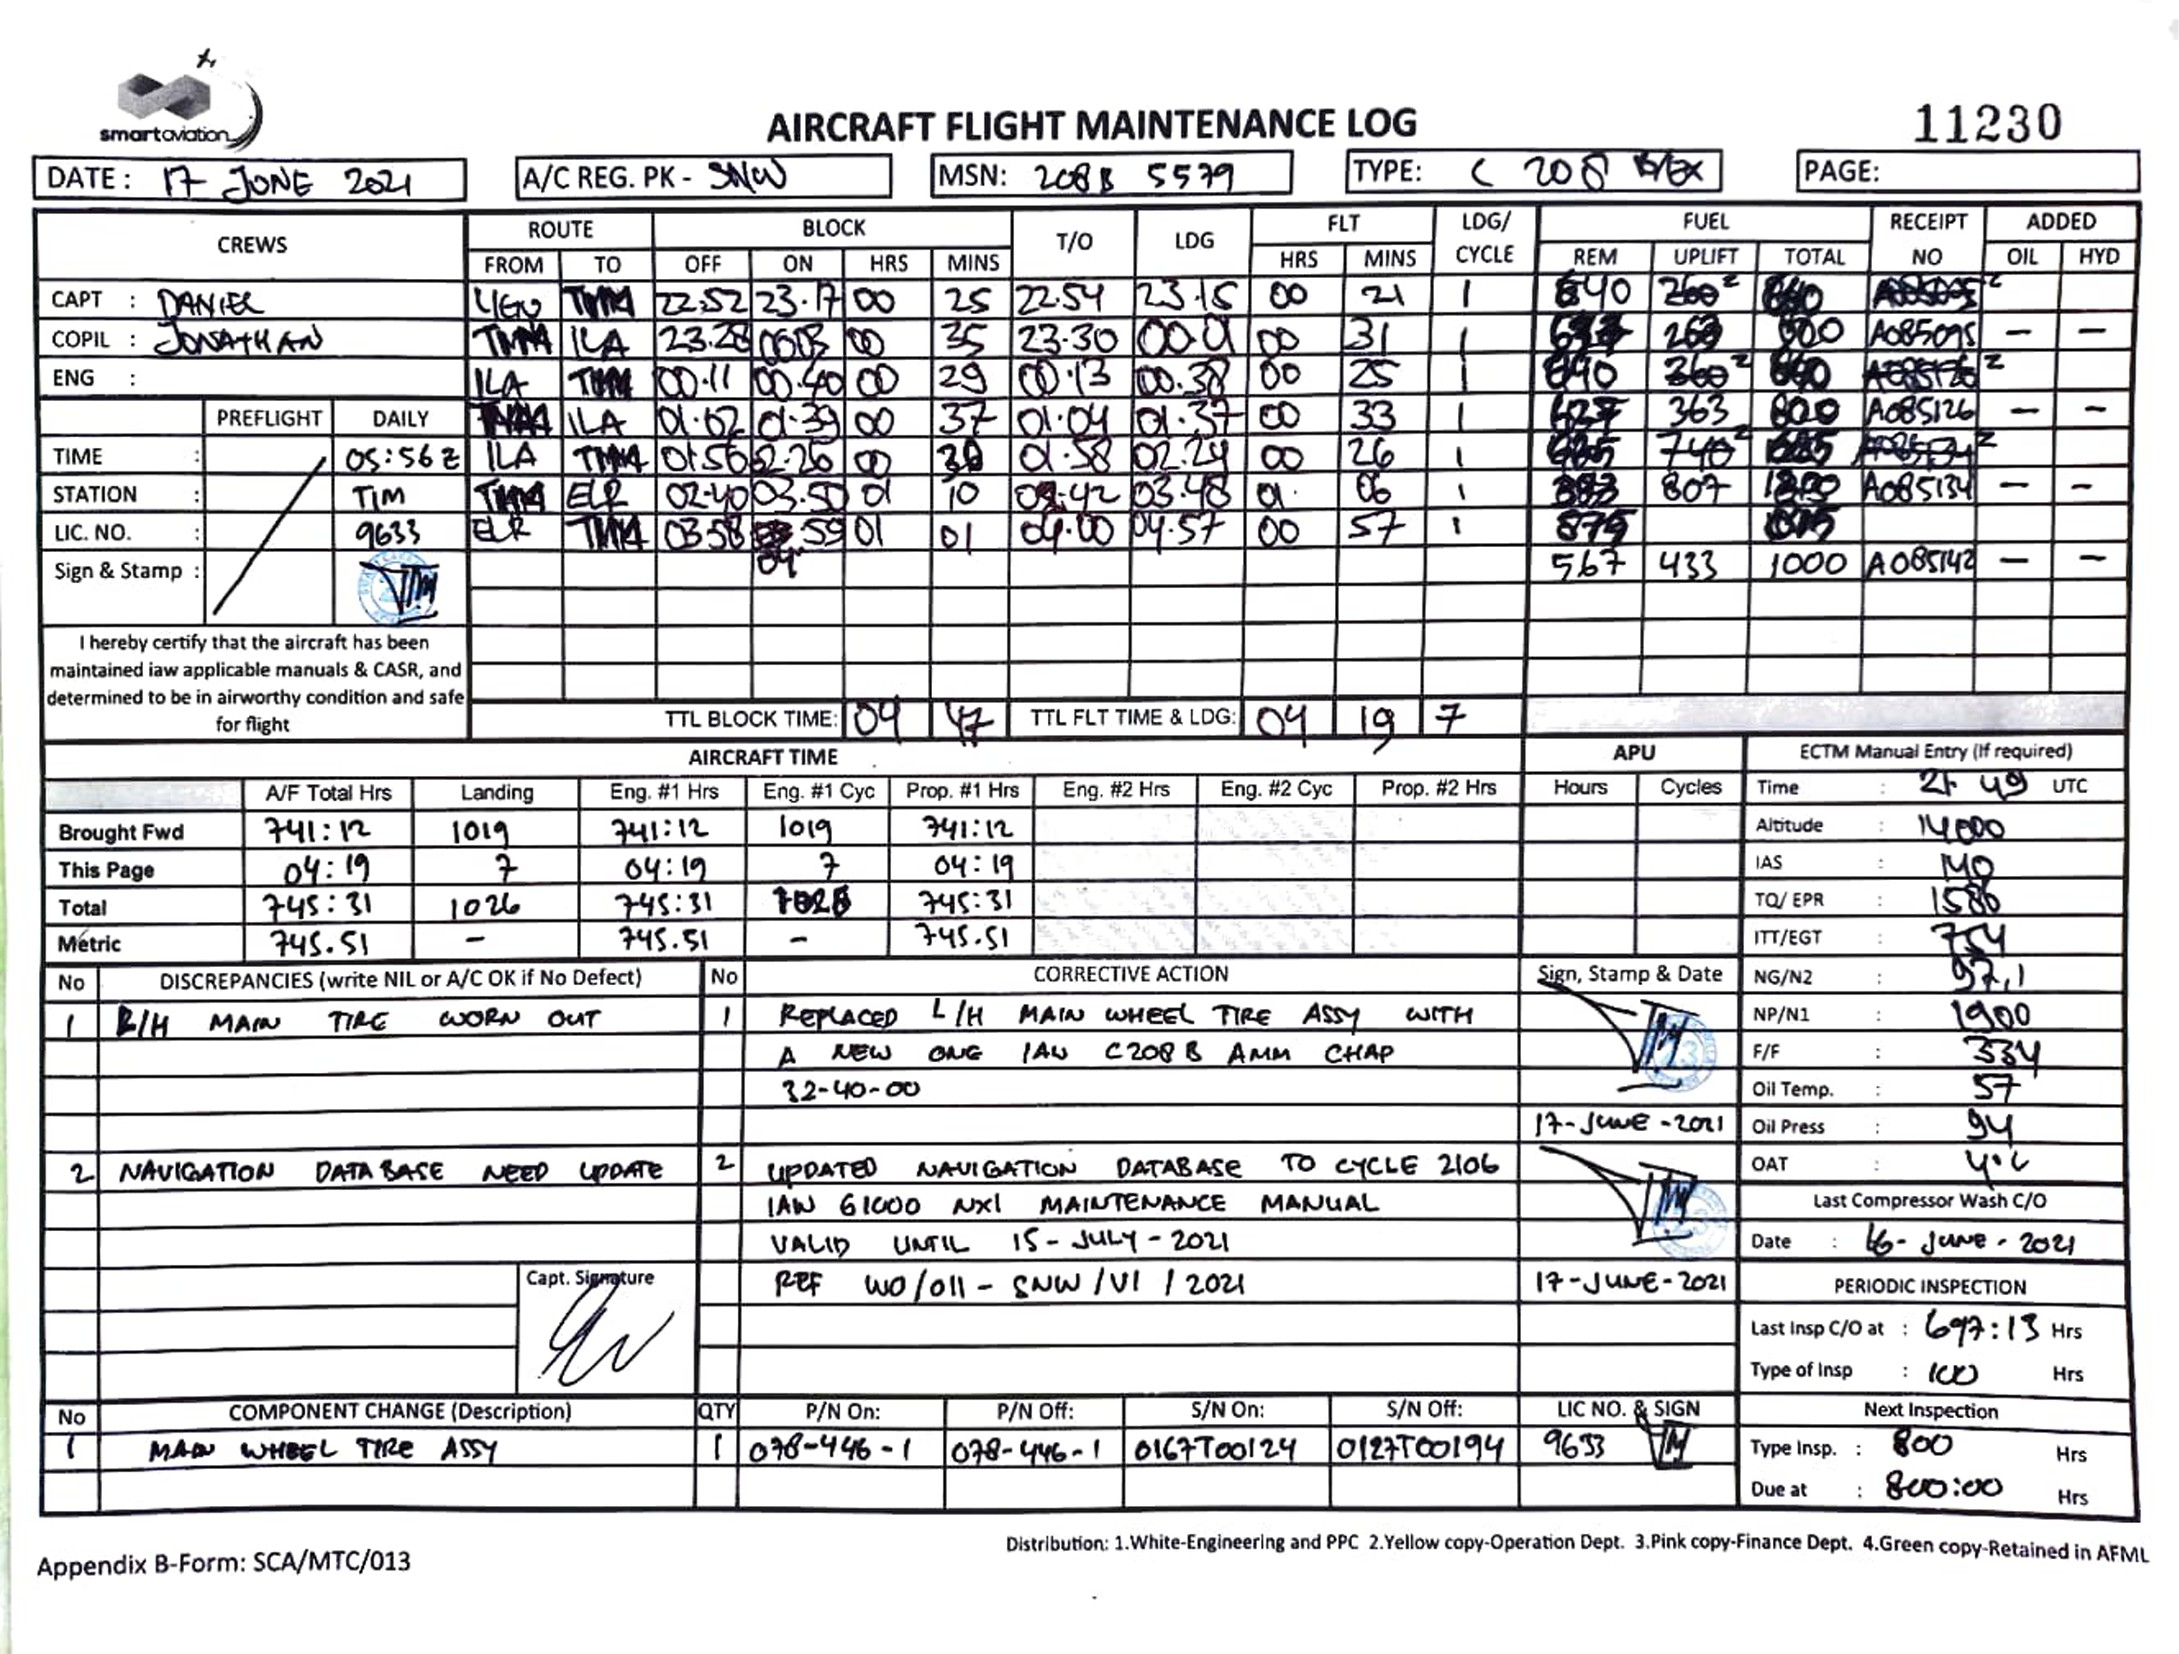 smartaviation
AIRCRAFT FLIGHT MAINTENANCE LOG
11230
DATE: 17 JUNE 2021
A/C REG. PK - SNW
MSN: 208B 5579
TYPE: C 208 B/EX
PAGE:
CREWS ROUTE BLOCK T/O LDG FLT LDG/ CYCLE FUEL RECEIPT NO ADDED
FROM TO OFF ON HRS MINS HRS MINS REM UPLIFT TOTAL OIL HYD
CAPT : DANIEL UGU 22:52 23.17 00 25 22.54 23.15 00 21 1
COPIL : JONATHAN ILA 23.28 00 35 23.30 00.01 00 31 1 A085095 - -
ENG : ILA 00.11 00.40 00 29 00.13 00.38 00 25 1
ILA 01.02 01.39 00 37 01.04 01.37 00 33 1 363 A085126 - -
PREFLIGHT DAILY
TIME : 05:56 Z ILA 01:56 02.26 00 01.58 02.24 00 26 1
STATION : TIM ELR 02.40 03.50 01 10 02.42 03.48 01. 06 1 807 A085134 - -
LIC. NO. : 9633 ELR 03.58 04 59 01 01 04.00 04.57 00 57 1
Sign & Stamp : 567 433 1000 A085142 - -
I hereby certify that the aircraft has been
maintained iaw applicable manuals & CASR, and
determined to be in airworthy condition and safe
for flight
TTL BLOCK TIME: 04 47 TTL FLT TIME & LDG: 04 19 7
AIRCRAFT TIME APU
A/F Total Hrs Landing Eng. #1 Hrs Eng. #1 Cyc Prop. #1 Hrs Eng. #2 Hrs Eng. #2 Cyc Prop. #2 Hrs Hours Cycles
Brought Fwd 741:12 1019 741:12 1019 741:12
This Page 04:19 7 04:19 7 04:19
Total 745:31 1026 745:31 1026 745:31
Metric 745.51 - 745.51 - 745.51
ECTM Manual Entry (If required)
Time : 21 49 UTC
Altitude : 14000
IAS : 140
TQ/ EPR : 1586
ITT/EGT : 754
NG/N2 : 97,1
NP/N1 : 1900
F/F : 334
Oil Temp. : 57
Oil Press : 94
OAT :
Last Compressor Wash C/O
Date : 16 - JUNE - 2021
PERIODIC INSPECTION
Last Insp C/O at : 697:13 Hrs
Type of Insp : 100 Hrs
Next Inspection
Type Insp. : 800 Hrs
Due at : 800:00 Hrs
No DISCREPANCIES (write NIL or A/C OK if No Defect) No CORRECTIVE ACTION Sign, Stamp & Date
1 MAIN TIRE WORN OUT 1 REPLACED L/H MAIN WHEEL TIRE ASSY WITH
A NEW ONE IAW C208 B AMM CHAP
32-40-00
17-JUNE-2021
2 NAVIGATION DATABASE NEED UPDATE 2 UPDATED NAVIGATION DATABASE TO CYCLE 2106
IAW G1000 NXI MAINTENANCE MANUAL
VALID UNTIL 15-JULY-2021
Capt. Signature REF WO/011 - SNW /VI / 2021 17-JUNE-2021
No COMPONENT CHANGE (Description) QTY P/N On: P/N Off: S/N On: S/N Off: LIC NO. & SIGN
1 MAIN WHEEL TIRE ASSY 1 078-446-1 078-446-1 0167T00124 0127T00194 9633
Distribution: 1.White-Engineering and PPC 2.Yellow copy-Operation Dept. 3.Pink copy-Finance Dept. 4.Green copy-Retained in AFML
Appendix B-Form: SCA/MTC/013